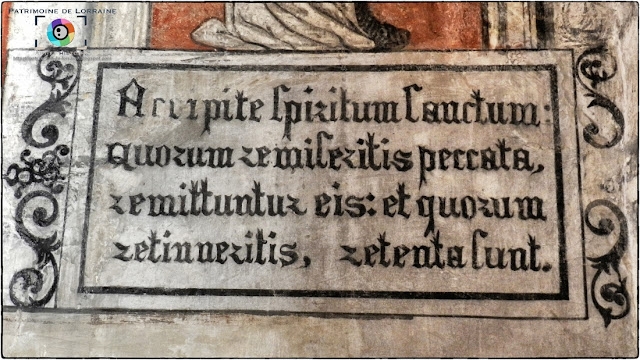 PATRIMOINE DE LORRAINE
Accipite spiritum sanctum:
quorum remiseritis peccata,
remittuntur eis: et quorum
retinneritis, retenta sunt.